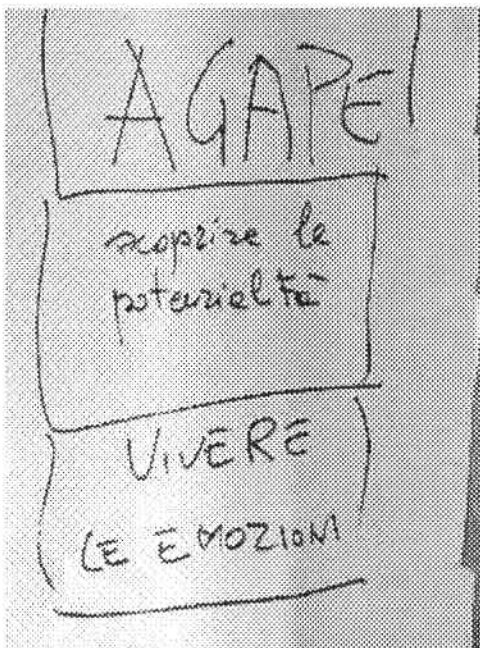 AGAPE
scoprire le
potenzialità
VIVERE
LE EMOZIONI